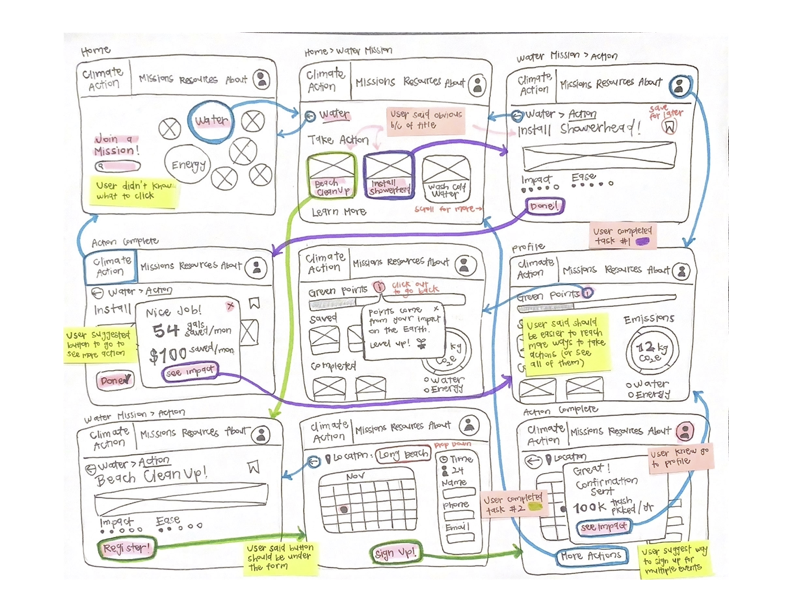 Home
Climate Action
Missions Resources About
Water
Join a Mission!
Energy
User didn't know what to click
Home > Water Mission
Climate Action
Missions Resources About
Water
User said obvious b/c of title
Take Action
Beach CleanUp
Install Showerhead
Wash Cold Water
Learn More
Scroll for more→
Water Mission > Action
Climate Action
Missions Resources About
Water > Action
Save for later
Install Showerhead!
Impact
Ease
Done!
User completed task #1
Action Complete
Climate Action
Missions Resources About
Water > Action
Install
Nice Job!
x
54 gals saved/mon
$100 saved/mon
see impact
Done!
User suggested button to go to see more action
Climate Action
Missions Resources About
Green Points
i
Click out to go back
Saved
Points come from your impact on the Earth. Level up!
x
kg
CO2e
Completed
Water
Energy
Profile
Climate Action
Missions Resources About
Green Points
i
User said should be easier to reach more ways to take actions (or see all of them)
Emissions
12 kg
CO2e
Water
Energy
Water Mission > Action
Climate Action
Missions Resources About
Water > Action
Beach CleanUp!
Impact
Ease
Register!
User said button should be under the form
Climate Action
Missions Resources About
Location:
Long Beach
Drop Down
Nov
Time
24
Name
Phone
Email
Sign Up!
User completed task #2
Action Complete
Climate Action
Missions Resources About
Location
User knew go to profile
Great!
Confirmation Sent
100k trash picked/yr
see impact
More Actions
User suggest way to sign up for multiple events